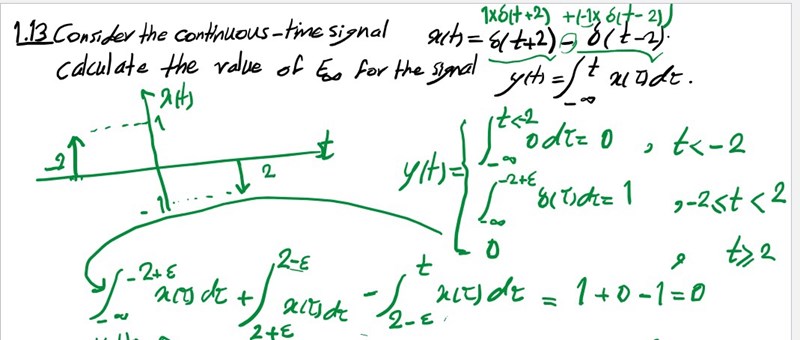 1×δ(t+2) +(-1×δ(t-2))
1.13 Consider the continuous-time signal x(t) = δ(t+2) - δ(t-2).
Calculate the value of E∞ for the signal y(t) = ∫_{-∞}^{t} x(τ)dτ.
x(t)
1
t
-2
2
-1
y(t)=
∫_{-∞}^{t<-2} 0dτ = 0 , t<-2
∫_{-∞}^{-2+ε} δ(τ)dτ = 1 , -2≤t<2
0 , t≥2
∫_{-∞}^{-2+ε} x(τ)dτ + ∫_{2+ε}^{2-ε} x(τ)dτ - ∫_{2-ε}^{t} x(τ)dτ = 1+0-1=0